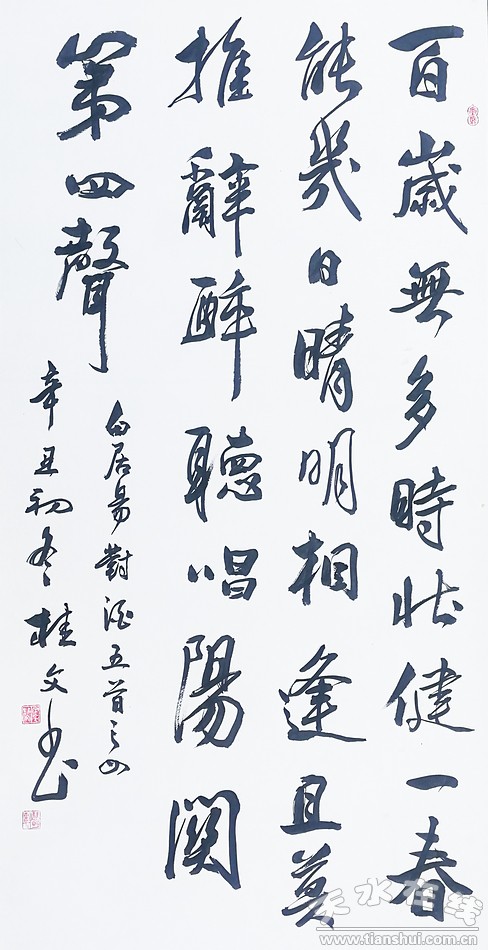 百歲無多時壯健一春
能幾日晴明相逢且莫
推辭醉聽唱陽關
第四聲
白居易對酒五首之四
辛丑初冬桂文書
天水在线
www.tianshui.com.cn